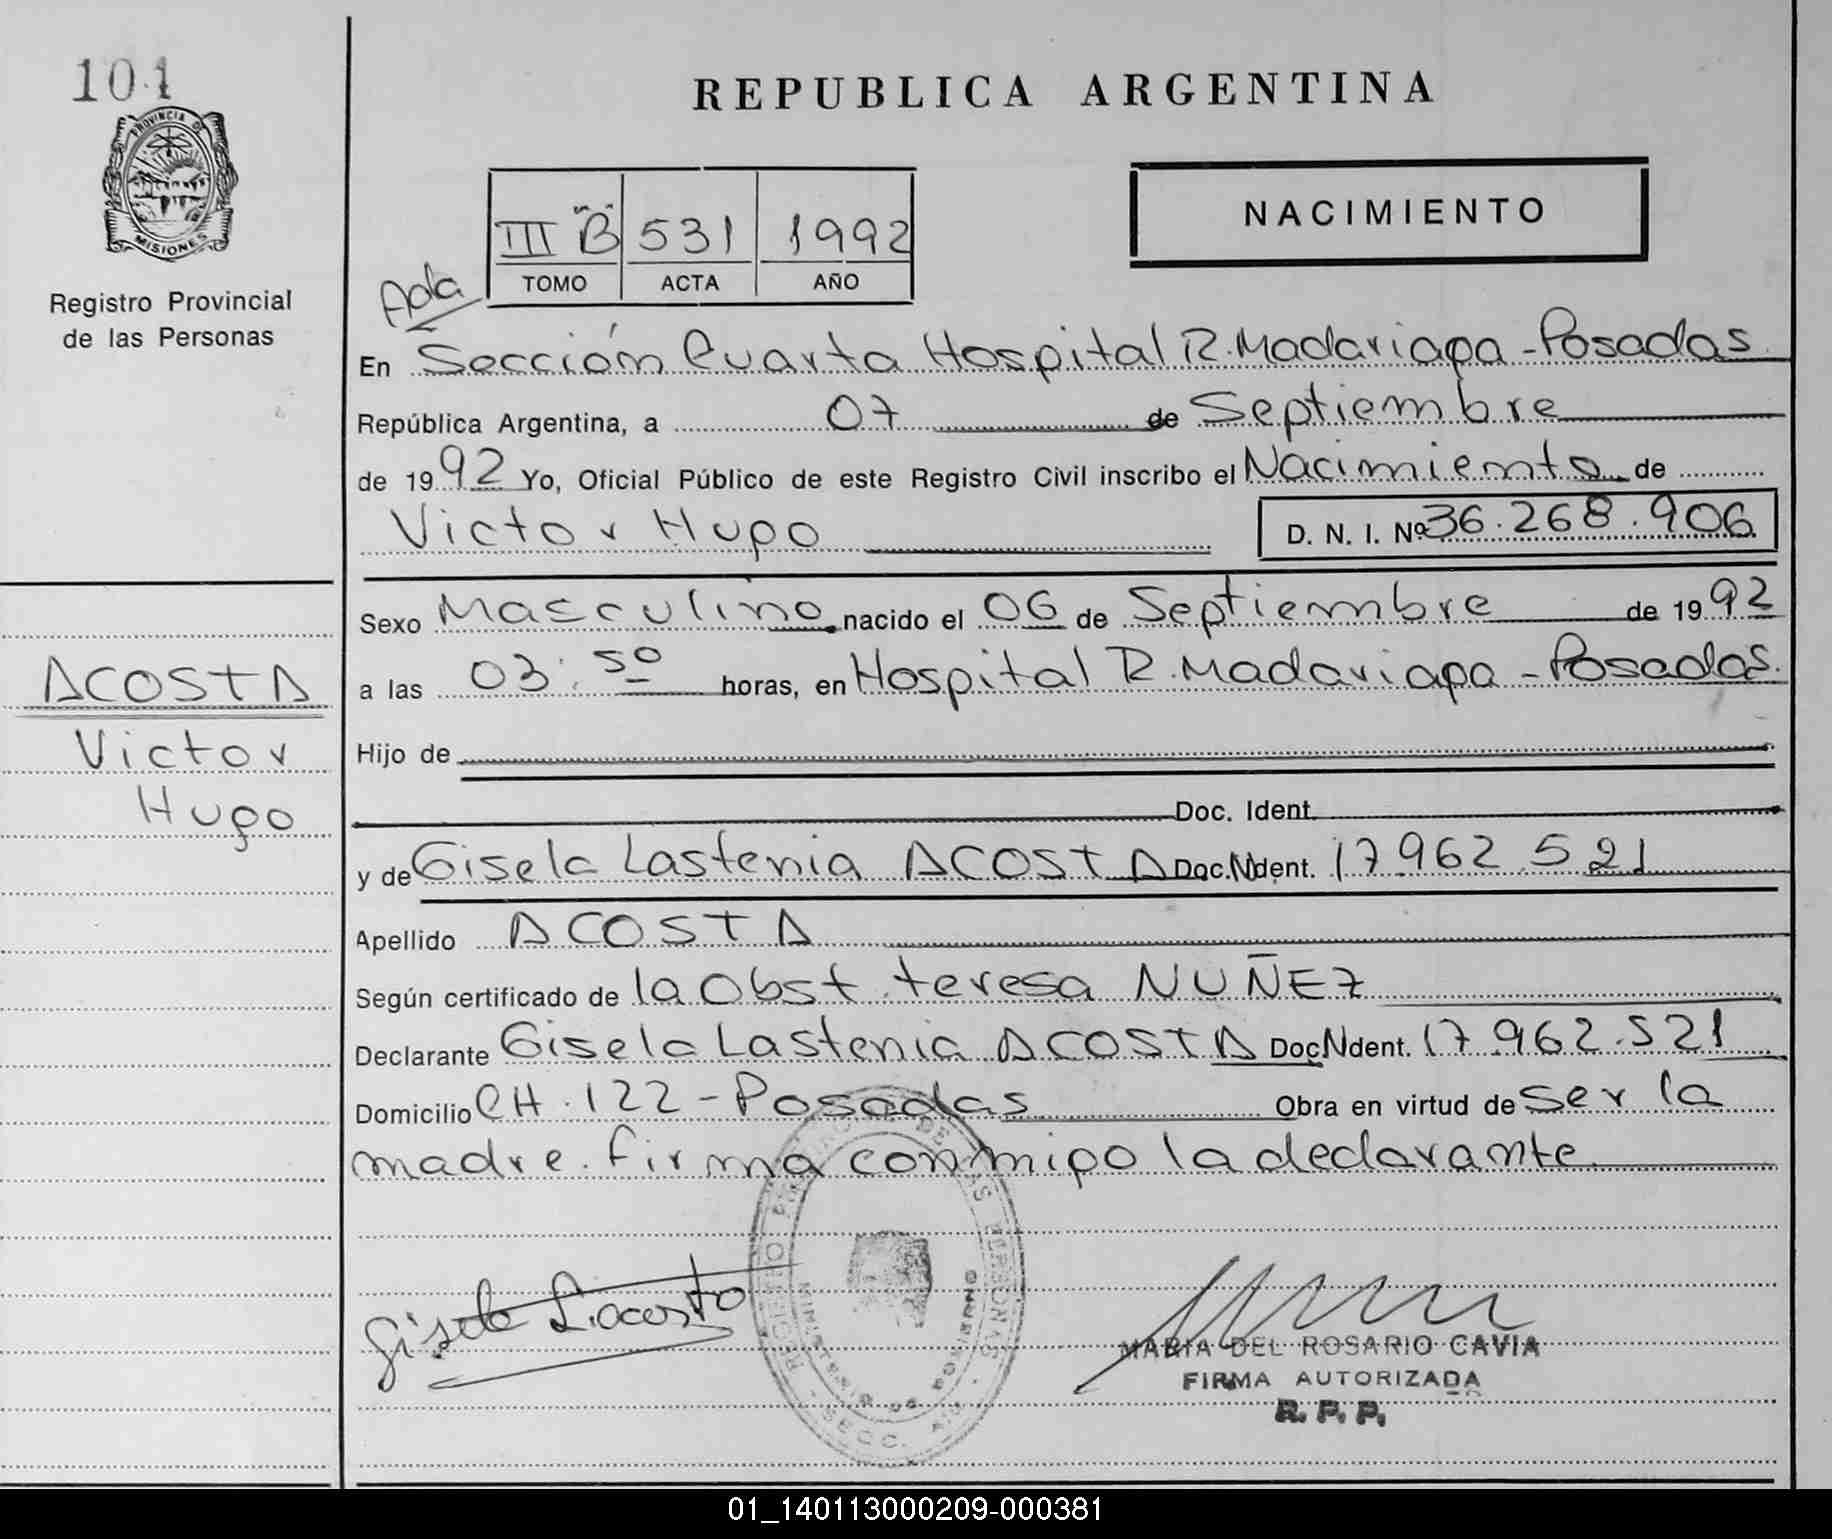 101
PROVINCIA DE
MISIONES
Registro Provincial
de las Personas
ACOSTA
Victor
Hugo
REPUBLICA ARGENTINA
III "B" 531 1992
TOMO ACTA AÑO
NACIMIENTO
En Sección Cuarta Hospital R. Madariaga - Posadas
República Argentina, a 07 de Septiembre
de 1992 Yo, Oficial Público de este Registro Civil inscribo el Nacimiento de
Victor Hugo D. N. I. Nº 36.268.906
Sexo Masculino nacido el 06 de Septiembre de 1992
a las 03:50 horas, en Hospital R. Madariaga - Posadas.
Hijo de
Doc. Ident.
y de Gisela Lastenia ACOSTA Doc. Ident. 17.962.521
Apellido ACOSTA
Según certificado de la Obst. teresa NUÑEZ
Declarante Gisela Lastenia ACOSTA Doc. Ident. 17.962.521
Domicilio CH. 122 - Posadas Obra en virtud de ser la
madre. firma conmigo la declarante
Gisela L. acosta
MARIA DEL ROSARIO CAVIA
FIRMA AUTORIZADA
R. P. P.
01_140113000209-000381